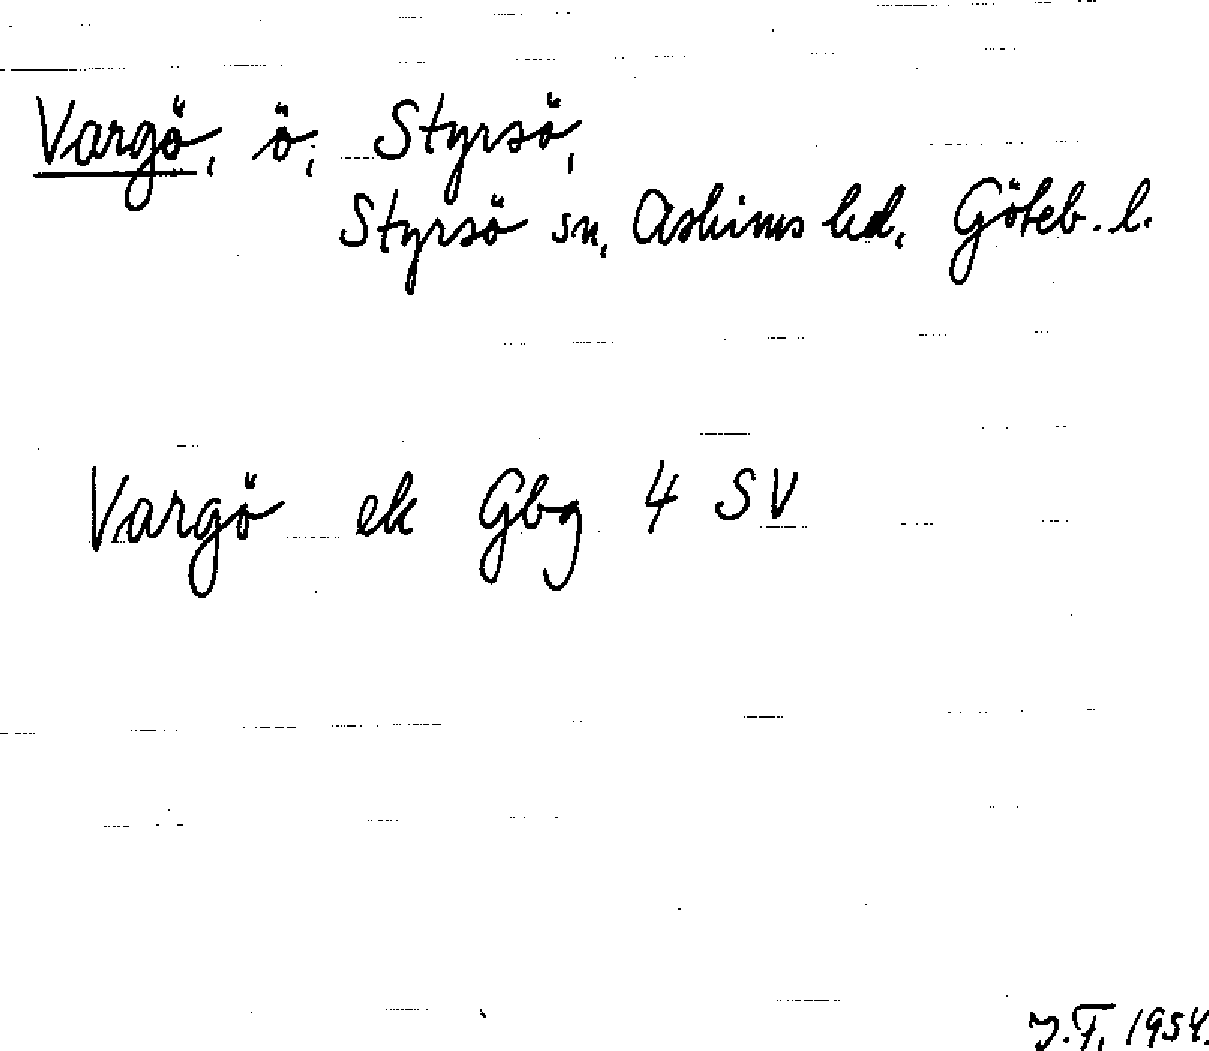 Vargö, ö, Styrsö,
Styrsö sn, Askims hd, Göteb. l.
Vargö ek Gbg 4 SV
J.F. 1954.